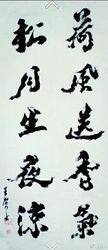 荷風送香氣
松月生夜涼